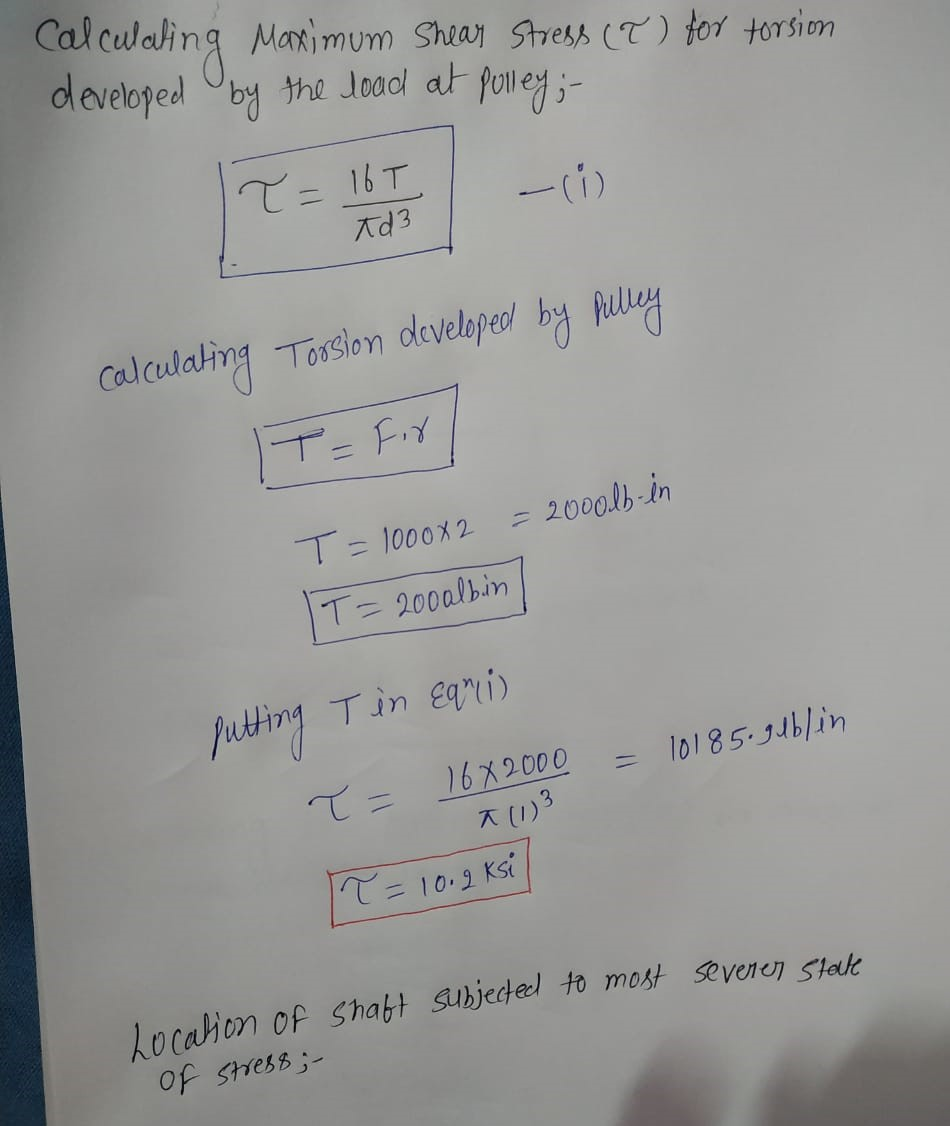 Calculating Maximum Shear Stress (τ) for torsion
developed by the load at pulley;-
τ = 16T / πd³ —(i)
Calculating Torsion developed by Pulley
T = F.r
T = 1000×2 = 2000lb-in
T = 2000lb.in
Putting T in Eqⁿ(i)
τ = 16×2000 / π(1)³ = 10185.9lb/in
τ = 10.2 Ksi
Location of shaft subjected to most severer state
of stress;-